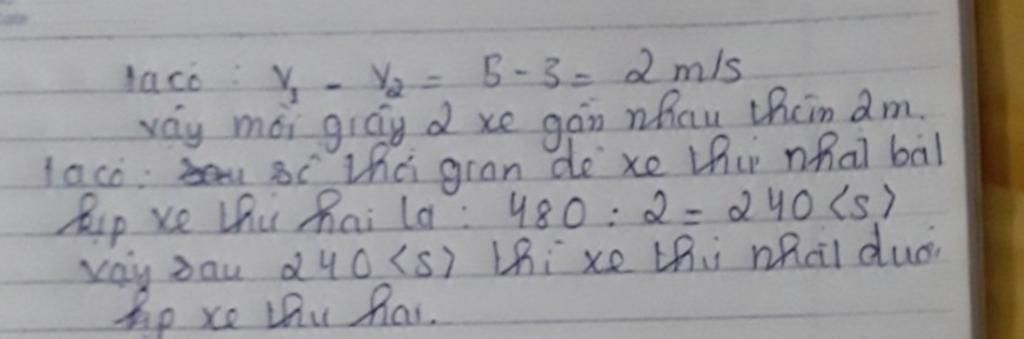 Ta có : V₁ - V₂ = 5 - 3 = 2 m/s
vậy mỗi giây 2 xe gần nhau thêm 2m.
Ta có : số thời gian để xe thứ nhất bắt
kịp xe thứ hai là : 480 : 2 = 240 <s>
vậy sau 240 <s> thì xe thứ nhất đuổi
kịp xe thứ hai.